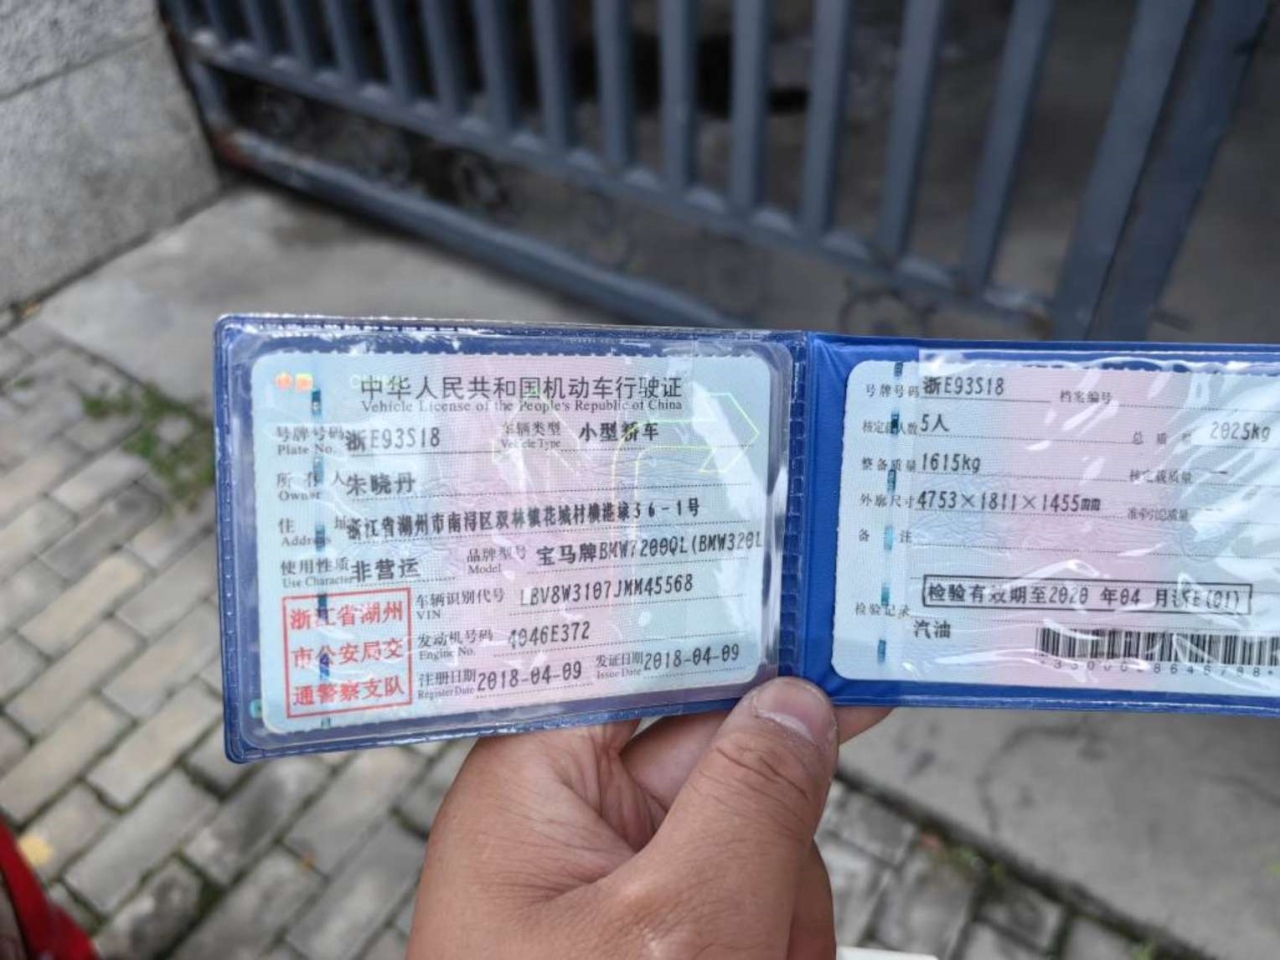 中华人民共和国机动车行驶证
Vehicle License of the People's Republic of China
号牌号码 浙E93S18 车辆类型 小型轿车
Plate No. Vehicle Type
所有人 朱晓丹
Owner
住址 浙江省湖州市南浔区双林镇花城村横港埭36-1号
Address
使用性质 非营运 品牌型号 宝马牌BMW7200QL(BMW320L
Use Character Model
浙江省湖州
市公安局交
通警察支队
车辆识别代号 LBV8W3107JMM45568
VIN
发动机号码 4046E372
Engine No.
注册日期 2018-04-09 发证日期 2018-04-09
Register Date Issue Date
号牌号码 浙E93S18 档案编号
核定载人数 5人 总质量 2025kg
整备质量 1615kg 核定载质量 --
外廓尺寸 4753×1811×1455mm 准牵引总质量 --
备注
检验有效期至2020 年04 月浙E(01)
检验记录
汽油